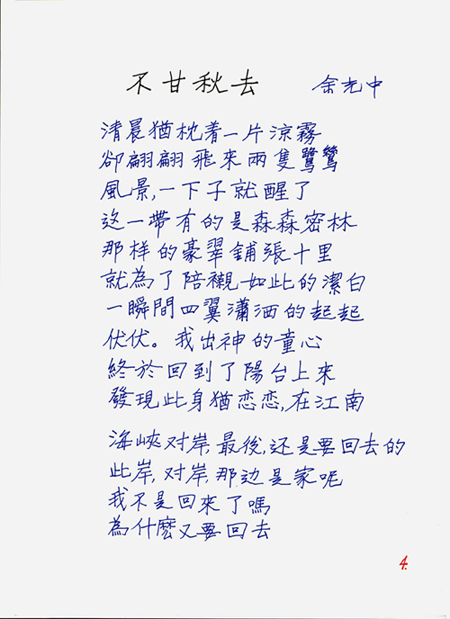 不甘秋去 余光中
清晨猶枕着一片涼霧
卻翩翩飛來兩隻鷺鷥
風景,一下子就醒了
这一带有的是森森密林
那样的豪翠鋪張十里
就為了陪襯如此的潔白
一瞬間四翼瀟洒的起起
伏伏。我出神的童心
終於回到了陽台上來
發現此身猶恋恋,在江南
海峽对岸,最後,还是要回去的
此岸,对岸,那边是家呢
我不是回來了嗎
為什麽又要回去
4.